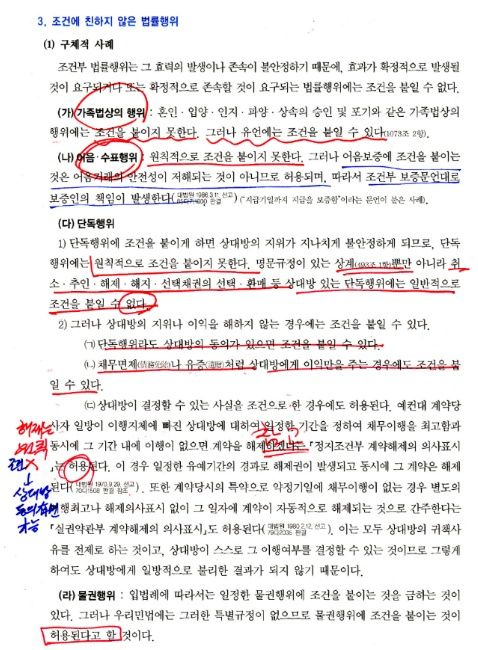 3. 조건에 친하지 않은 법률행위
(1) 구체적 사례
조건부 법률행위는 그 효력의 발생이나 존속이 불안정하기 때문에, 효과가 확정적으로 발생될
것이 요구되거나 또는 확정적으로 존속할 것이 요구되는 법률행위에는 조건을 붙일 수 없다.
(가) 가족법상의 행위 : 혼인 · 입양 · 인지 · 파양 · 상속의 승인 및 포기와 같은 가족법상의
행위에는 조건을 붙이지 못한다. 그러나 유언에는 조건을 붙일 수 있다(1073조 2항).
(나) 어음 · 수표행위 : 원칙적으로 조건을 붙이지 못한다. 그러나 어음보증에 조건을 붙이는
것은 어음거래의 안전성이 저해되는 것이 아니므로 허용되며, 따라서 조건부 보증문언대로
보증인의 책임이 발생한다(대법원 1986.3.11. 선고 판결) ("지급기일까지 지급을 보증함"이라는 문언이 붙은 사례).
(다) 단독행위
1) 단독행위에 조건을 붙이게 하면 상대방의 지위가 지나치게 불안정하게 되므로, 단독
행위에는 원칙적으로 조건을 붙이지 못한다. 명문규정이 있는 상계(493조 1항)뿐만 아니라 취
소 · 추인 · 해제 · 해지 · 선택채권의 선택 · 환매 등 상대방 있는 단독행위에는 일반적으로
조건을 붙일 수 없다.
2) 그러나 상대방의 지위나 이익을 해하지 않는 경우에는 조건을 붙일 수 있다.
㈀ 단독행위라도 상대방의 동의가 있으면 조건을 붙일 수 있다.
㈁ 채무면제(債務免除)나 유증(遺贈)처럼 상대방에게 이익만을 주는 경우에도 조건을 붙
일 수 있다.
㈂ 상대방이 결정할 수 있는 사실을 조건으로 한 경우에도 허용된다. 예컨대 계약당
사자 일방이 이행지체에 빠진 상대방에 대하여 일정한 기간을 정하여 채무이행을 최고함과
동시에 그 기간 내에 이행이 없으면 계약을 해제하겠다는 「정지조건부 계약해제의 의사표시」
는 허용된다. 이 경우 일정한 유예기간의 경과로 해제권이 발생되고 동시에 그 계약은 해제
된다(대법원 1970.9.29. 선고 70다1508 판결 참조). 또한 계약당시의 특약으로 약정기일에 채무이행이 없는 경우 별도의
이행최고나 해제의사표시 없이 그 일자에 계약이 자동적으로 해제되는 것으로 간주한다는
「실권약관부 계약해제의 의사표시」도 허용된다(대법원 1980.2.12. 선고 79다2035 판결). 이는 모두 상대방의 귀책사
유를 전제로 하는 것이고, 상대방이 스스로 그 이행여부를 결정할 수 있는 것이므로 그렇게
하여도 상대방에게 일방적으로 불리한 결과가 되지 않기 때문이다.
(라) 물권행위 : 입법례에 따라서는 일정한 물권행위에 조건을 붙이는 것을 금하는 것이
있다. 그러나 우리민법에는 그러한 특별규정이 없으므로 물권행위에 조건을 붙이는 것이
허용된다고 할 것이다.
해제는
조건 X
상대방
가능